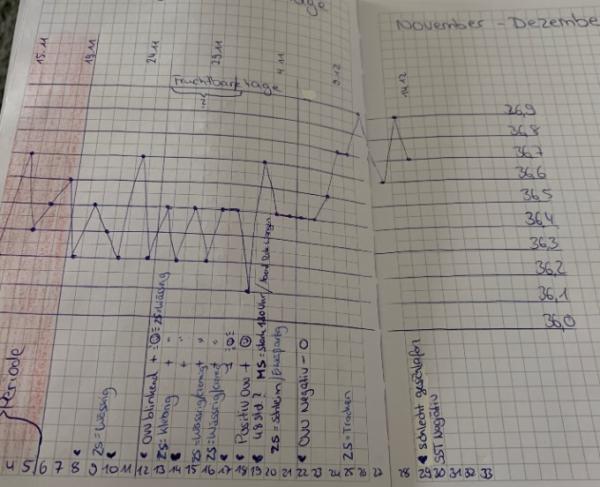 November - Dezember
15.11
19.11
24.11
29.11
4.11
9.12
14.12
Fruchtbare Tage
36,9
36,8
36,7
36,6
36,5
36,4
36,3
36,2
36,1
36,0
Periode
ZS = Wässrig
Ovu blinkend +
ZS = Wässrig
ZS = Wässrig
ZS = Wässrig/cremig
ZS = Wässrig/cremig
Positiv Ovu +
48 std ?
MS = stark
ZS = Schleim/
Ovu Negativ - O
ZS = Trocken
schlecht geschlafen
SST Negativ
4 5 6 7 8 9 10 11 12 13 14 15 16 17 18 19 20 21 22 23 24 25 26 27 28 29 30 31 32 33